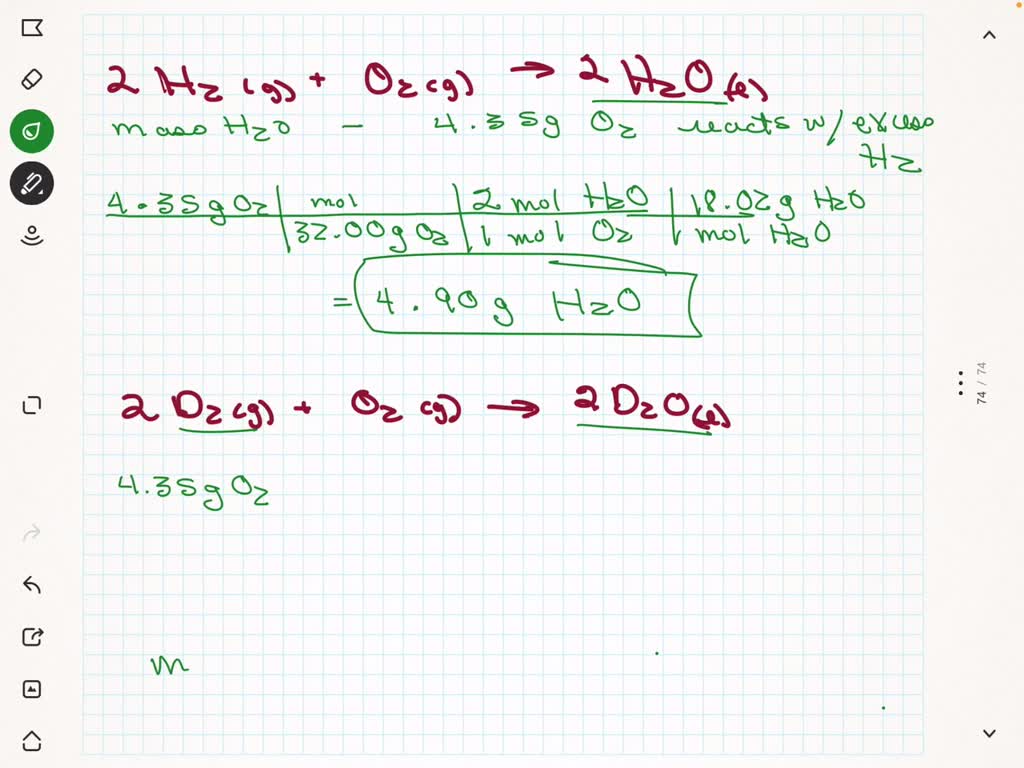 2 H₂ (g) + O₂ (g) → 2 H₂O (l)
mass H₂O – 4.35g O₂ reacts w/ excess
H₂
4.35g O₂ | mol | 2 mol H₂O | 18.02g H₂O
32.00g O₂ | 1 mol O₂ | mol H₂O
= 4.90g H₂O
2 D₂ (g) + O₂ (g) → 2 D₂O (l)
4.35g O₂
m
74 / 74